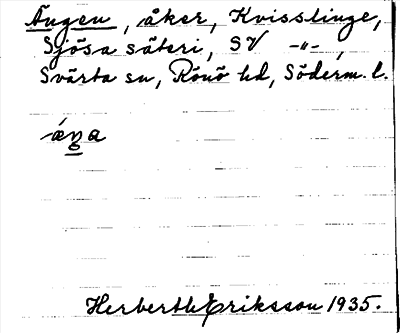 Ängen, åker, Kvisslinge,
Sjösa säteri, SV -"-,
Svärta sn, Rönö hd, Söderm. l.
äŋa
Herberth Eriksson 1935.